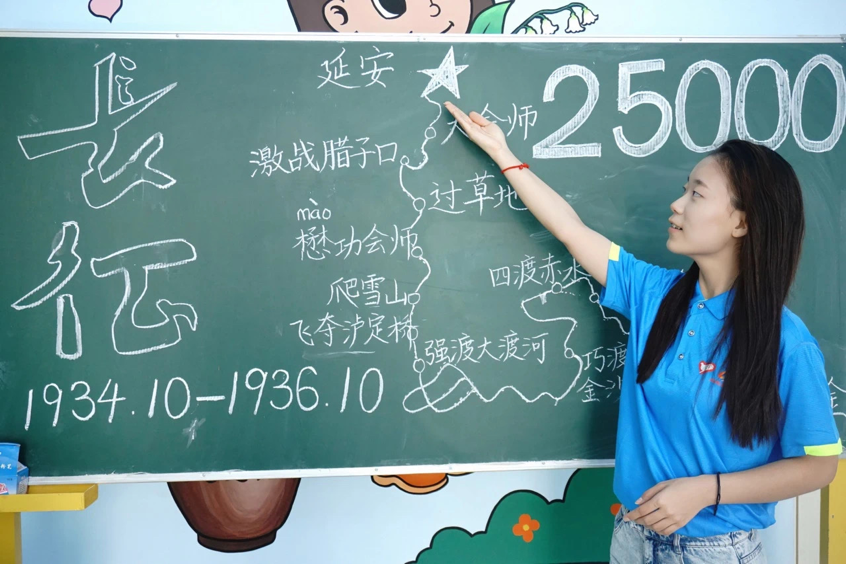 长
征
延安
25000
大会师
激战腊子口
过草地
mào
懋功会师
四渡赤水
爬雪山
飞夺泸定桥
强渡大渡河
巧渡
金沙
1934.10-1936.10